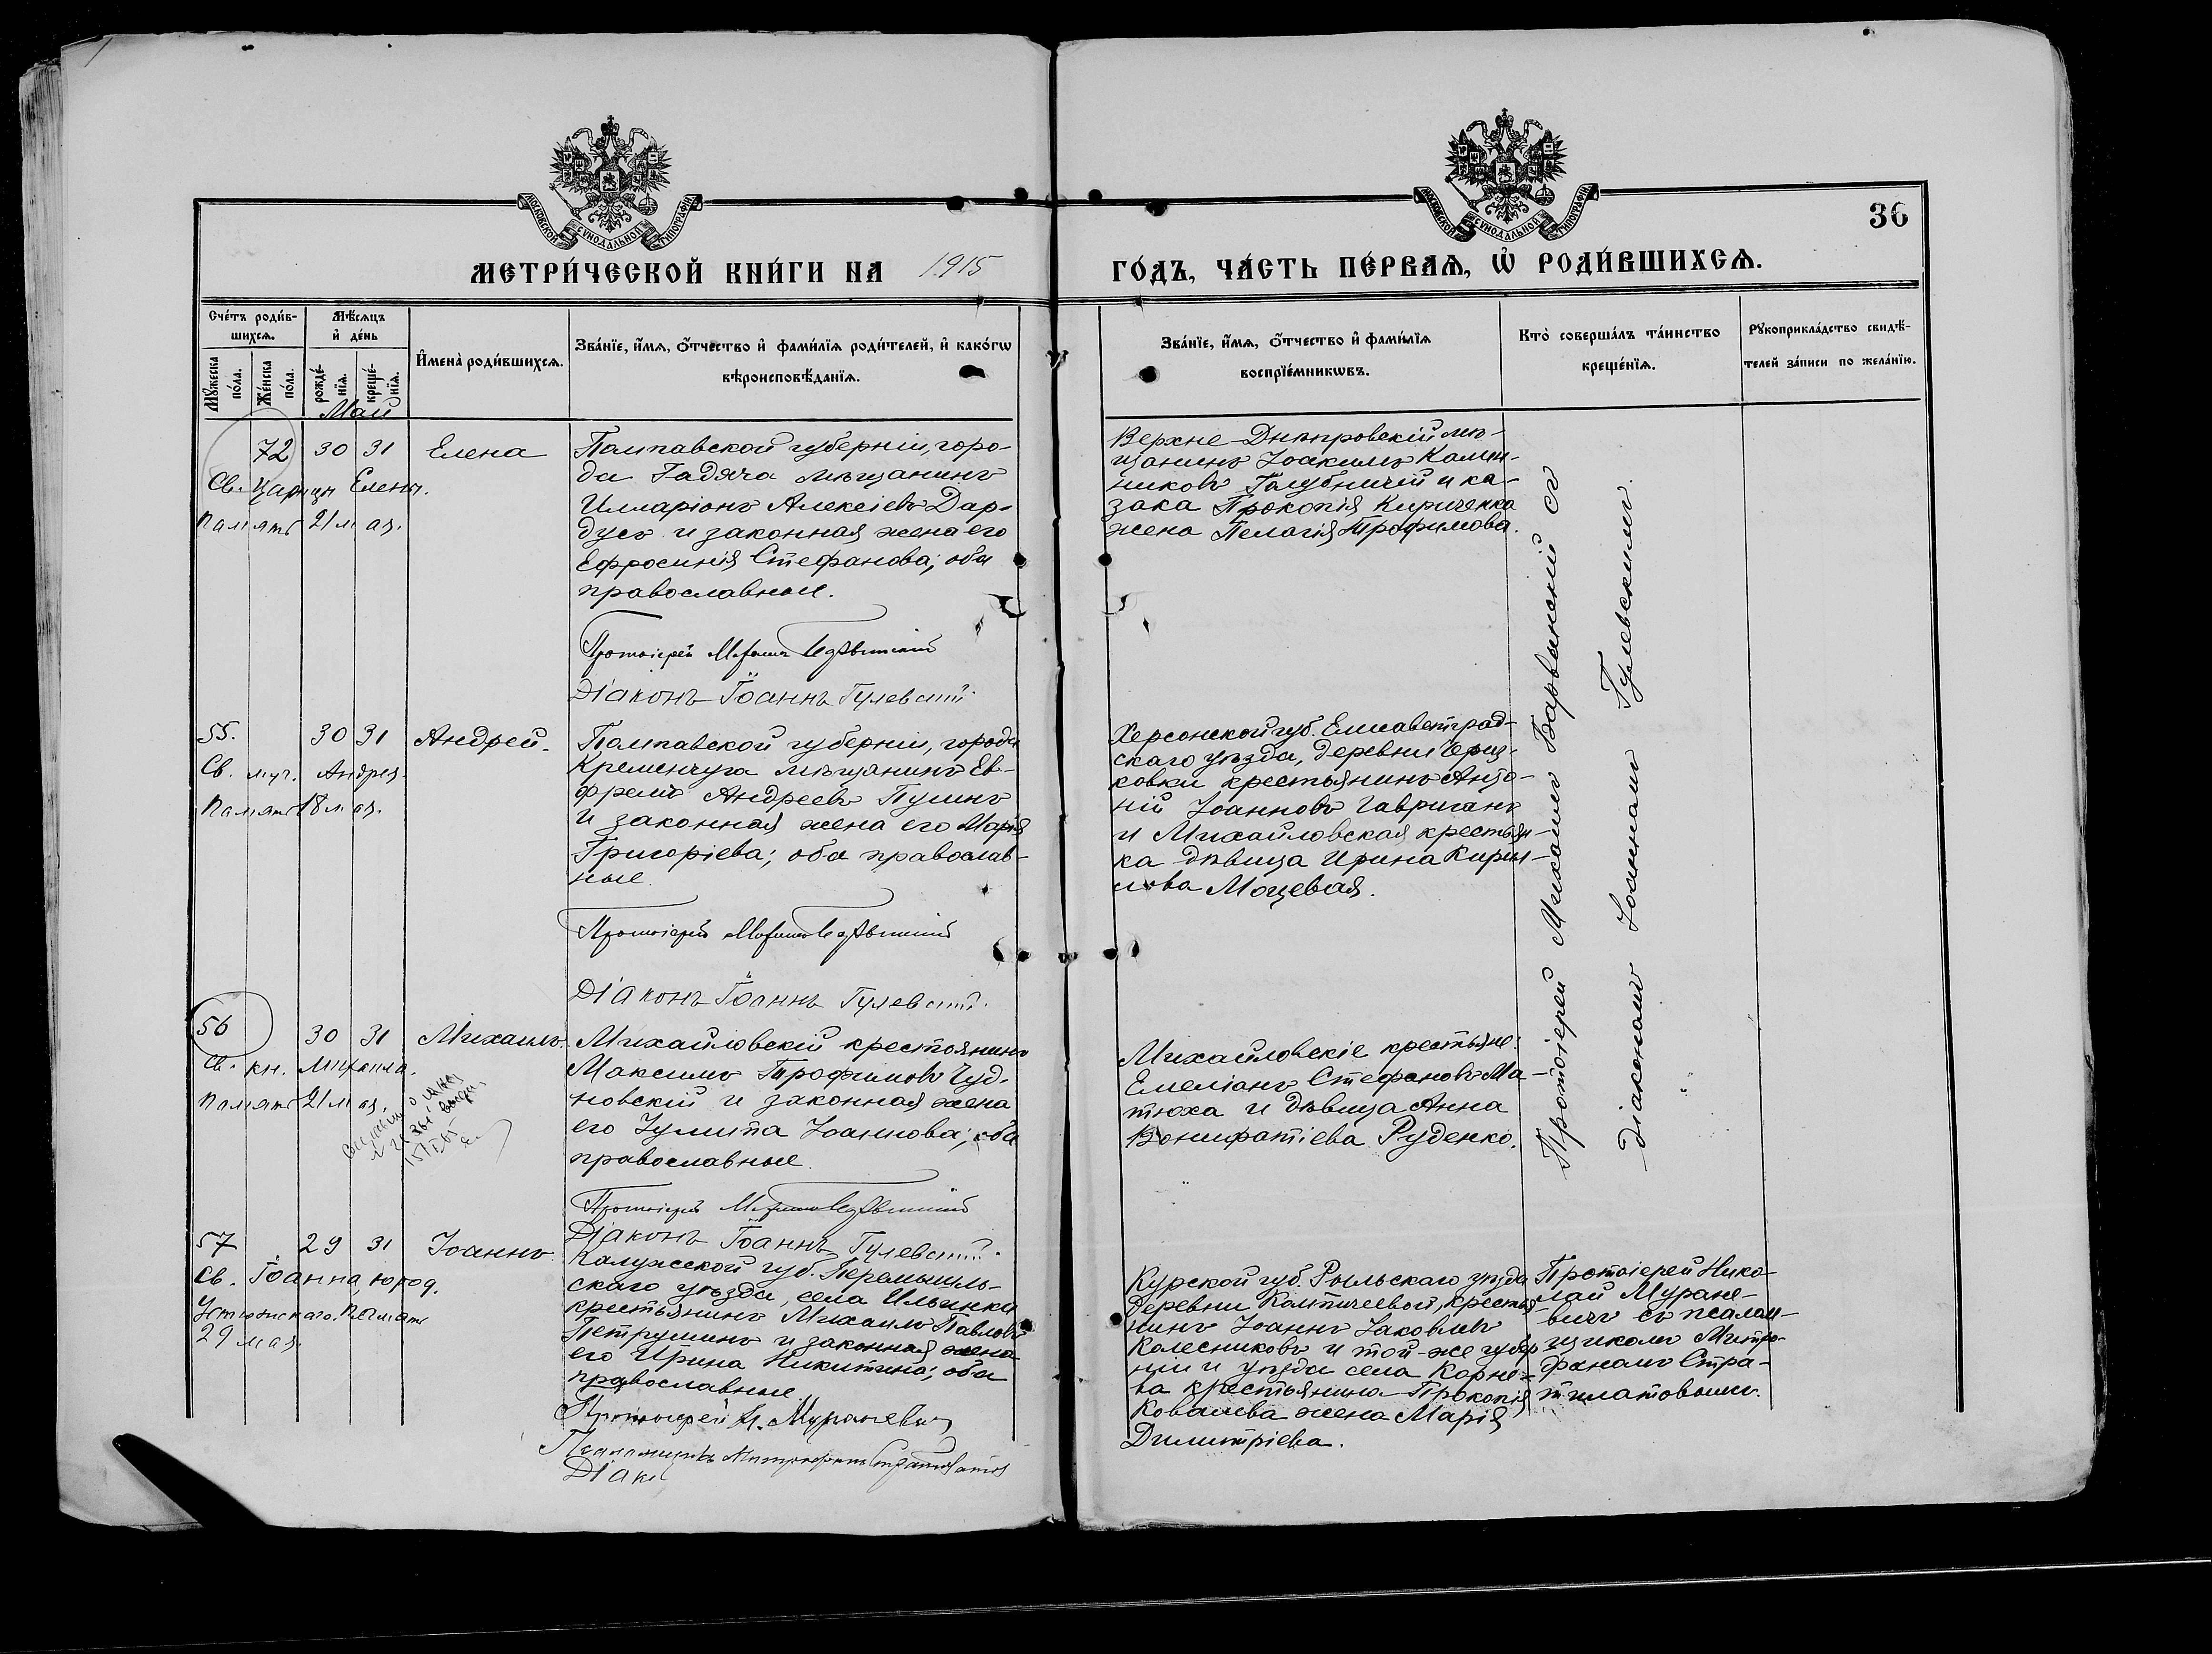 МОСКОВСКОЙ СѴНОДАЛЬНОЙ ТИПОГРАФІИ
МОСКОВСКОЙ СѴНОДАЛЬНОЙ ТИПОГРАФІИ
36
МЕТРИ́ЧЕСКОЙ КНИ́ГИ НА 1915 ГО́ДЪ, ЧА́СТЬ ПЕ́РВАѦ, Ѡ҆ РОДИ́ВШИХСѦ.
Сче́тъ роди́в-
шихсѧ.
Мꙋ́жеска по́ла.
Же́нска по́ла.
Мѣ́сѧцъ
и҆ де́нь
рожде́-
нїѧ.
креще́-
нїѧ.
И҆мена̀ роди́вшихсѧ.
Зва́нїе, и҆́мѧ, ѻ҆́тчество и҆ фами́лїѧ роди́телей, и҆ како́гѡ
вѣроисповѣ́данїѧ.
Зва́нїе, и҆́мѧ, ѻ҆́тчество и҆ фами́лїѧ
воспрїе́мникѡвъ.
Кто̀ соверша́лъ та́инство
креще́нїѧ.
Рꙋкоприкла́дство свидѣ́-
телей за́писи по жела́нїю.
Май
72 30 31 Елена
Св. Царицы Елены.
Память 21 мая.
Полтавской губерніи, горо-
да Гадяча мѣщанинъ
Илларіонъ Алексіевъ Дар-
дусъ и законная жена его
Ефросинія Стефанова; оба
православные.
Протоіерей
Діаконъ Іоаннъ Гулевскій.
Верхне-Днѣпровскій мѣ-
щанинъ Іоакимъ
Голубничій и ка-
зака Прокопія Кириченка
жена Пелагія Трофимова.
Протоіерей Михаилъ Барвинскій съ
діакономъ Іоанномъ Гулевскимъ.
55. 30 31 Андрей.
Св. муч. Андрея.
Память 18 мая.
Полтавской губерніи, города
Кременчуга мѣщанинъ Ев-
фремъ Андреевъ Пулинъ
и законная жена его Марія
Григоріева; оба православ-
ные.
Протоіерей
Діаконъ Іоаннъ Гулевскій.
Херсонской губ. Елисаветград-
скаго уѣзда, деревни
ковки крестьянинъ Анто-
ній Іоанновъ Гавриганъ
и Михайловская крестьян-
ка дѣвица Ирина Кирил-
лова Моцевая.
56 30 31 Михаилъ.
Св. кн. Михаила.
Память 21 мая.
Михайловскій крестьянинъ
Максимъ Трофимовъ Чуд-
новскій и законная жена
его Іулита Іоаннова; оба
православные.
Протоіерей
Діаконъ Іоаннъ Гулевскій.
Михайловскіе крестьяне:
Емеліанъ Стефановъ Ма-
тюха и дѣвица Анна
Вонифатіева Руденко.
57 29 31 Іоаннъ.
Св. Іоанна, юрод.
Устюжскаго. Память
29 мая.
Калужской губ. Перемышль-
скаго уѣзда, села Ильинки
крестьянинъ Михаилъ Павловъ
Петрушинъ и законная жена
его Ирина Никитина; оба
православные.
Протоіерей Н. Мураневичъ
Псаломщикъ Митрофанъ Стратилатовъ
Діак
Курской губ. Рыльскаго уѣзда
деревни крестья-
нинъ Іоаннъ Іаковлевъ
Колесниковъ и той-же губер-
ніи и уѣзда села Корне-
ва крестьянина Прокопія
Ковалева жена Марія
Димитріева.
Протоіерей Нико-
лай Муране-
вичъ съ псалом-
щикомъ Митро-
фаномъ Стра-
тилатовымъ.